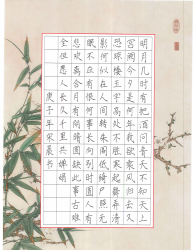 明月几时有把酒问青天不知天上
宫阙今夕是何年我欲乘风归去又
恐琼楼玉宇高处不胜寒起舞弄清
影何似在人间转朱阁低绮户照无
眠不应有恨何事长向别时圆人有
悲欢离合月有阴晴圆缺此事古难
全但愿人长久千里共婵娟
庚子年宋晨书